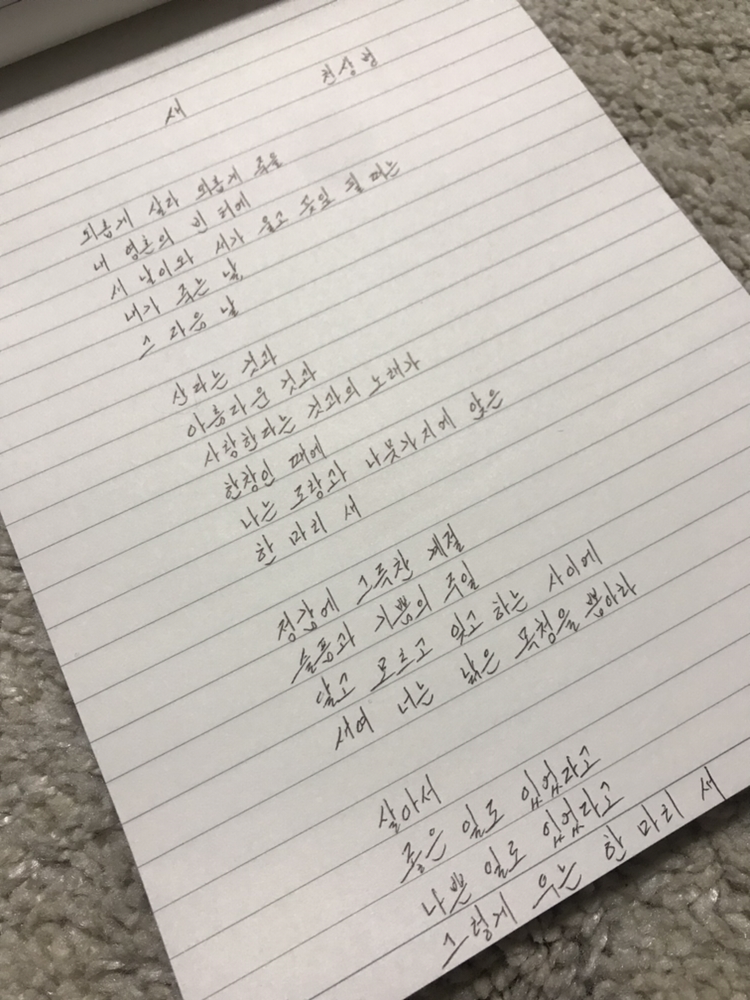 새 천상병
외롭게 살다 외롭게 죽을
내 영혼의 빈 터에
새 날이와 새가 울고 꽃잎 필 때는
내가 죽는 날
그 다음 날
산다는 것과
아름다운 것과
사랑한다는 것과의 노래가
한창인 때에
나는 도랑과 나뭇가지에 앉은
한 마리 새
정감에 그득찬 계절
슬픔과 기쁨의 주일
알고 모르고 잊고 하는 사이에
새여 너는 낡은 목청을 뽑아라
살아서
좋은 일도 있었다고
나쁜 일도 있었다고
그렇게 우는 한 마리 새